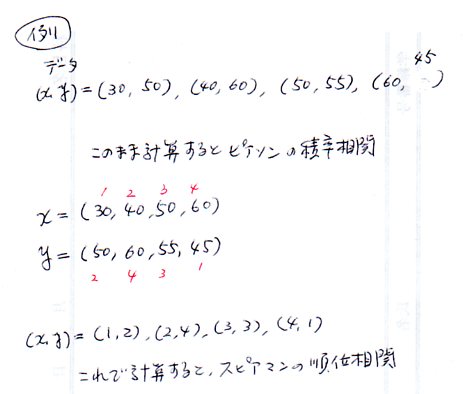 例1
データ
(x, y) = (30, 50), (40, 60), (50, 55), (60, 45)
このまま計算するとピアソンの積率相関
1 2 3 4
x = (30, 40, 50, 60)
y = (50, 60, 55, 45)
2 4 3 1
(x, y) = (1, 2), (2, 4), (3, 3), (4, 1)
これで計算すると、スピアマンの順位相関